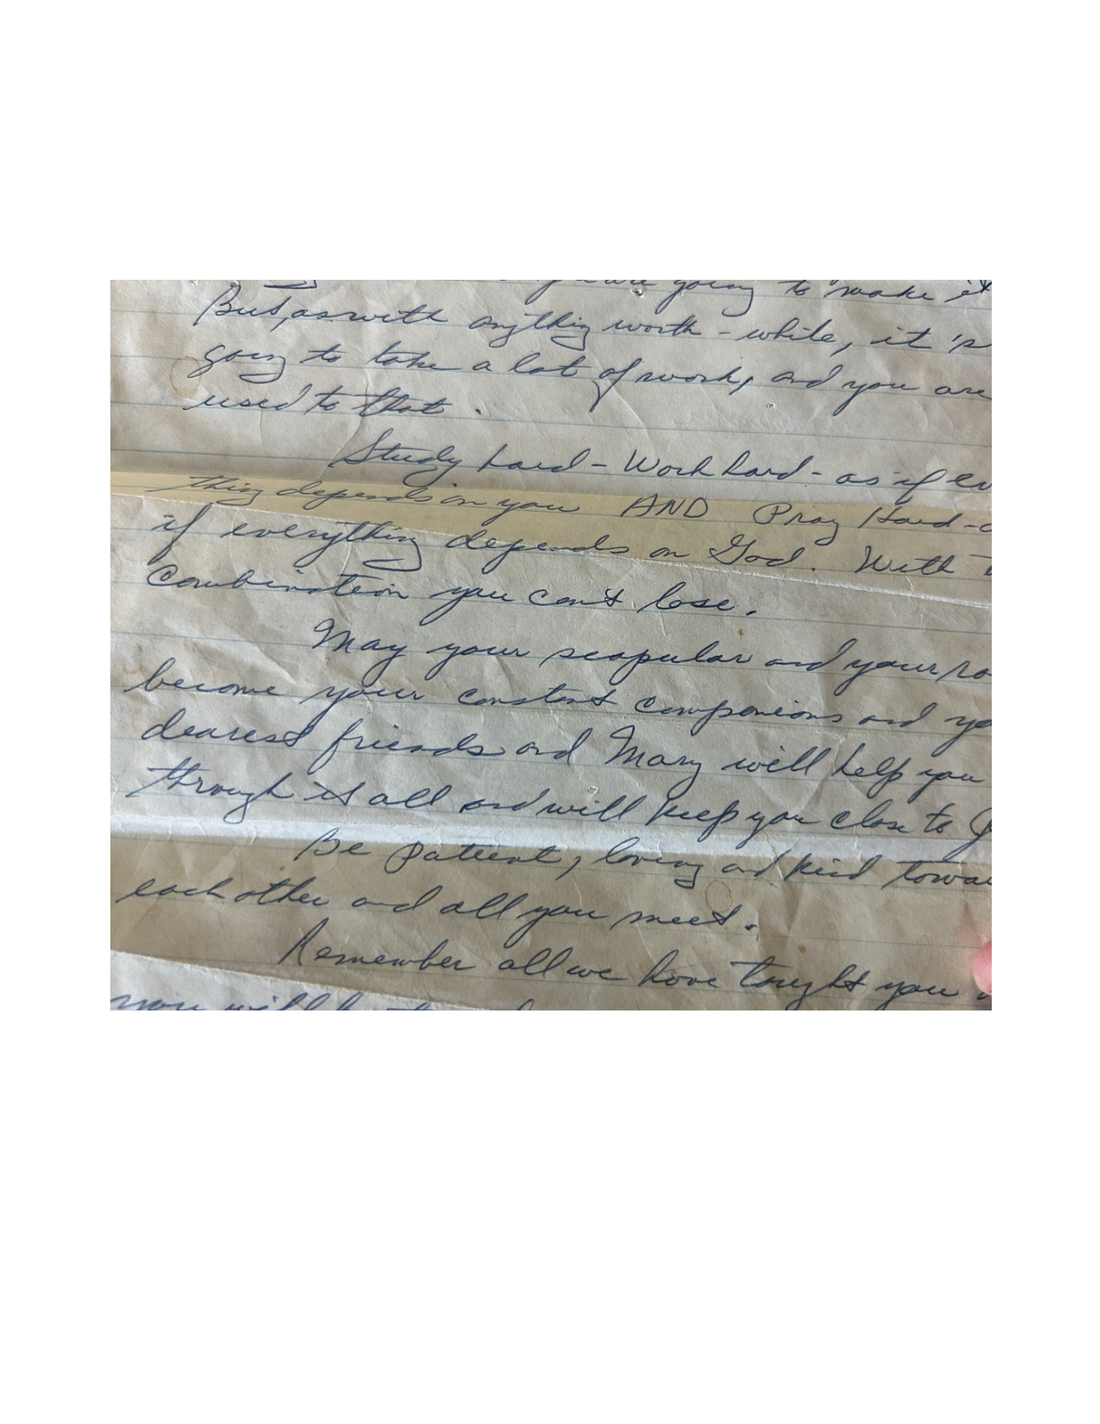 are going to make it
But, as with anything worth-while, it is
going to take a lot of work, and you are
used to that.
Study hard - Work hard - as if ev
thing depends on you AND Pray Hard -
if everything depends on God. With
combination you can't lose.
May your scapular and your ro
become your constant companions and yo
dearest friends and Mary will help you
through it all and will keep you close to
Be patient, loving and kind towa
each other and all you meet.
Remember all we have taught you
you will